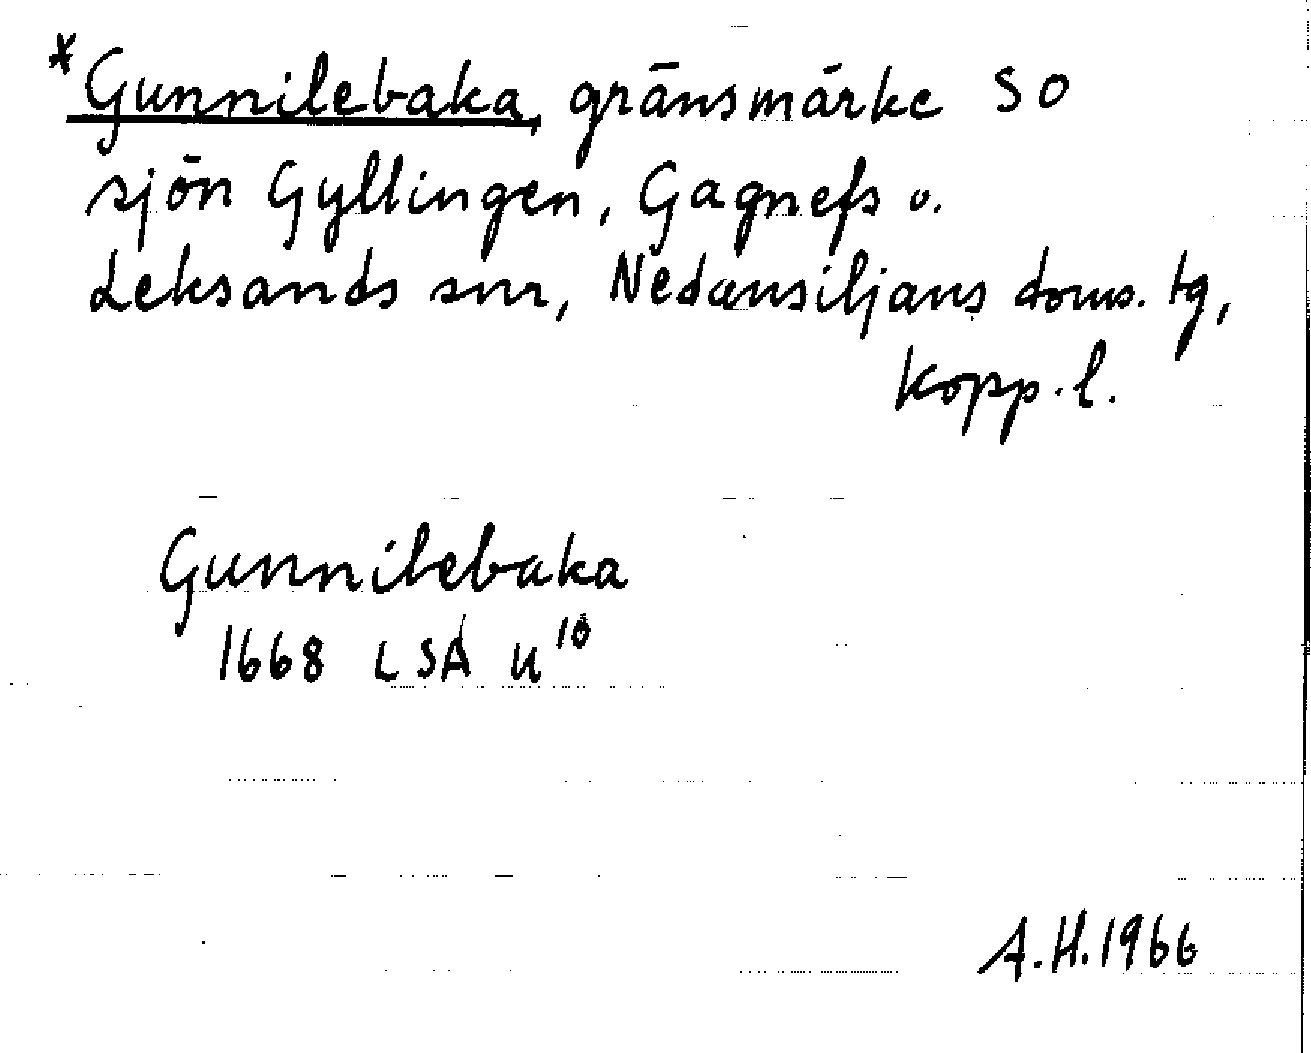 *Gunnilebaka, gränsmärke SO
sjön Gyllingen, Gagnefs o.
Leksands snr, Nedansiljans doms. tg,
Kopp. l.
Gunnilebaka
1668 LSA U¹⁰
A.H. 1966